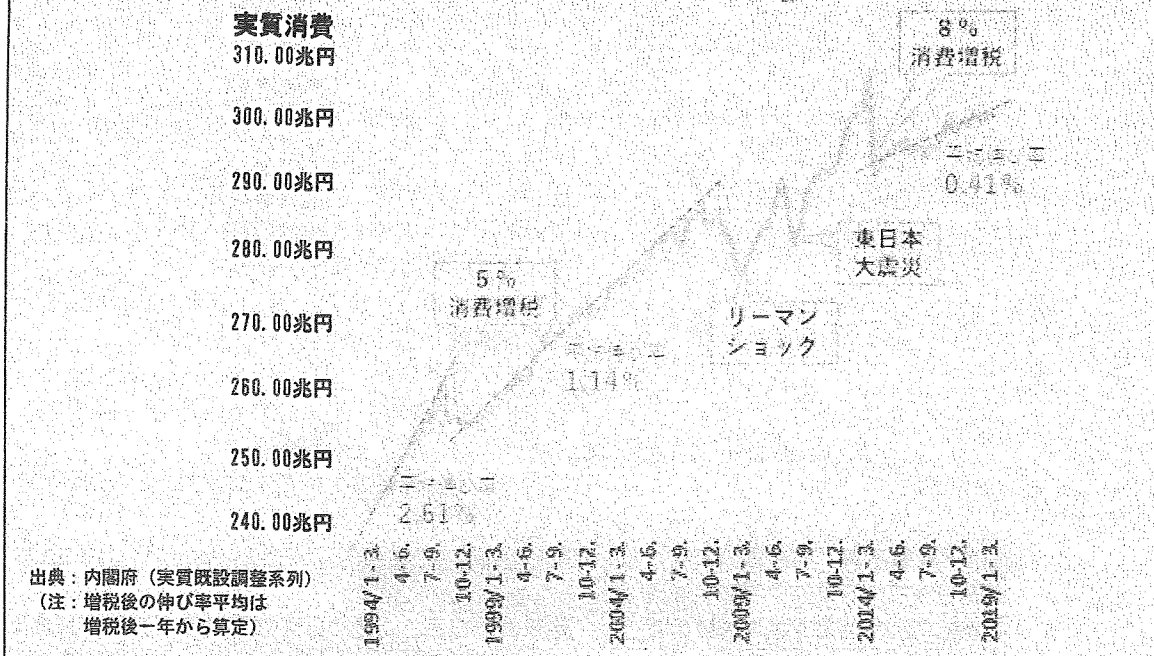 実質消費
310.00兆円
300.00兆円
290.00兆円
280.00兆円
270.00兆円
260.00兆円
250.00兆円
240.00兆円
8%
消費増税
0.41%
東日本
大震災
5%
消費増税
リーマン
ショック
1.14%
2.61%
1994/1-3.
4-6.
7-9.
10-12.
1999/1-3.
4-6.
7-9.
10-12.
2004/1-3.
4-6.
7-9.
10-12.
2009/1-3.
4-6.
7-9.
10-12.
2014/1-3.
4-6.
7-9.
10-12.
2019/1-3.
出典：内閣府（実質既設調整系列）
（注：増税後の伸び率平均は
増税後一年から算定）